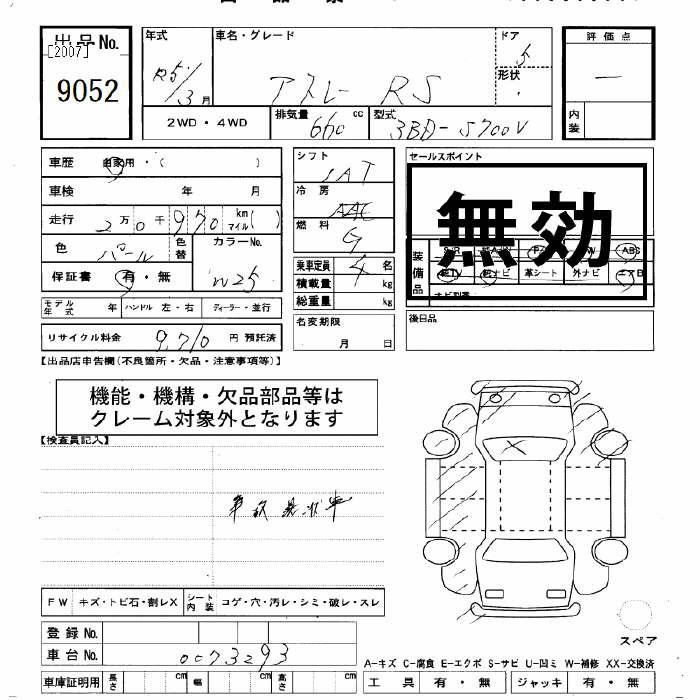 出品No.
[2007]
9052
年式
R5/3月
車名・グレード
アトレー RS
ドア
5
形状
評価点
―
内装
2WD・4WD
排気量
660 cc
型式
3BD-S700V
車歴 自家用・( )
車検 年 月
走行 2万0千970 km マイル( )
色 パール
色替
カラーNo.
W25
保証書 有・無
モデル年式 年 ハンドル 左・右 ディーラー・並行
リサイクル料金 9,710 円 預託済
シフト
IAT
冷房
AAC
燃料
G
乗車定員 4 名
積載量 kg
総重量 kg
名変期限
月 日
セールスポイント
無効
装備品
S/R
ABS
ナビ
革シート
外ナビ
エアB
後日品
【出品店申告欄(不良箇所・欠品・注意事項等)】
機能・機構・欠品部品等は
クレーム対象外となります
【検査員記入】
事故現状車
FW キズ・トビ石・割レX
シート内装 コゲ・穴・汚レ・シミ・破レ・スレ
登録No.
車台No. 0073293
車庫証明用 長さ cm 幅 cm 高さ cm
スペア
A-キズ C-腐食 E-エクボ S-サビ U-凹ミ W-補修 XX-交換済
工具 有・無 ジャッキ 有・無